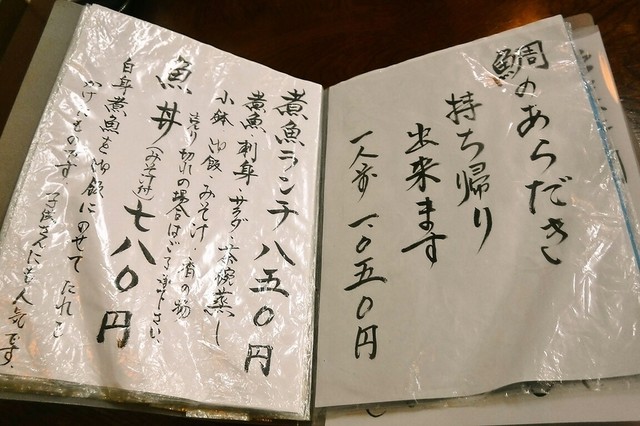 鯛のあらだき
持ち帰り
出来ます
一人前 一、〇五〇円
煮魚ランチ 八五〇円
煮魚 刺身 サラダ 茶碗蒸し
小鉢 御飯 みそ汁 漬物
売り切れの場合はご了承下さい
魚丼(みそ汁付)七八〇円
白身煮魚を御飯にのせて たれを
かけたものです 子供さんにも人気です。